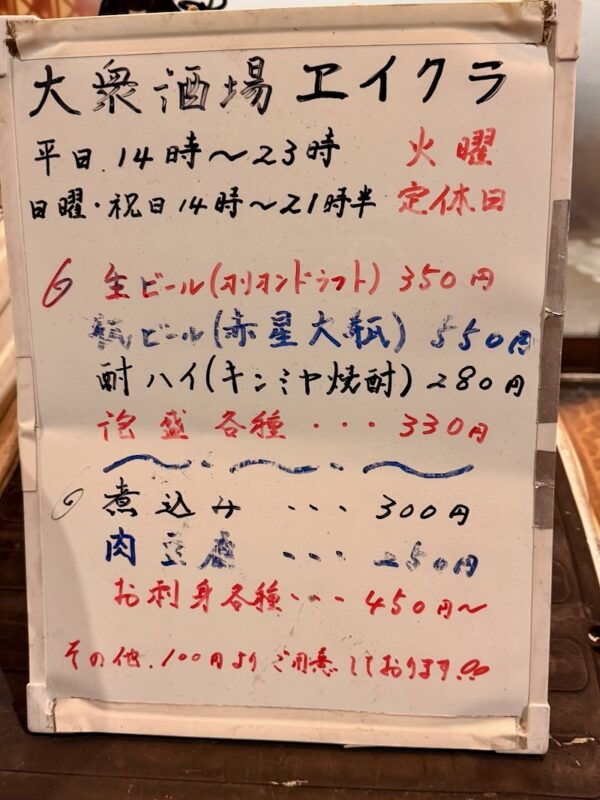 大衆酒場 ヱイクラ
平日.14時～23時 火曜
日曜・祝日14時～21時半 定休日
生ビール(オリオンドラフト) 350円
瓶ビール(赤星大瓶) 550円
酎ハイ(キンミヤ焼酎) 280円
泡盛各種・・・330円
煮込み ・・・ 300円
肉豆腐 ・・・ 250円
お刺身各種・・・450円～
その他.100円よりご用意しております!!